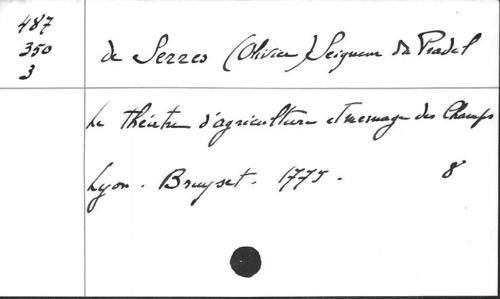 487
350
3
de Serres (Olivier) Seigneur du Pradel
Le théatre d'agriculture et mesnage des Champs
Lyon. Bruyset. 1775. 8